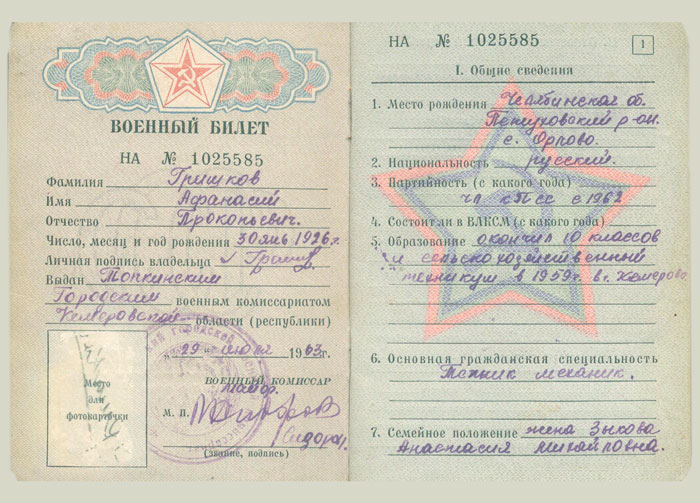 ВОЕННЫЙ БИЛЕТ
НА № 1025585
Фамилия Гришков
Имя Афанасий
Отчество Прокопьевич.
Число, месяц и год рождения 30 янв 1926 г.
Личная подпись владельца
Выдан Топкинским
Городским военным комиссариатом
Кемеровской области (республики)
„29" июля 1963 г.
ВОЕННЫЙ КОМИССАР
майор
М. П.
(звание, подпись)
Место
для
фотокарточки
НА № 1025585
1
I. Общие сведения
1. Место рождения Челябинской об.
Петуховский р-он.
с. Орлово.
2. Национальность русский.
3. Партийность (с какого года)
чл КПСС с 1962
4. Состоял ли в ВЛКСМ (с какого года)
5. Образование окончил 10 классов
и сельскохозяйственный
техникум в 1959 г. г. Кемерово
6. Основная гражданская специальность
Техник механик.
7. Семейное положение жена Зыкова
Анастасия Михайловна.